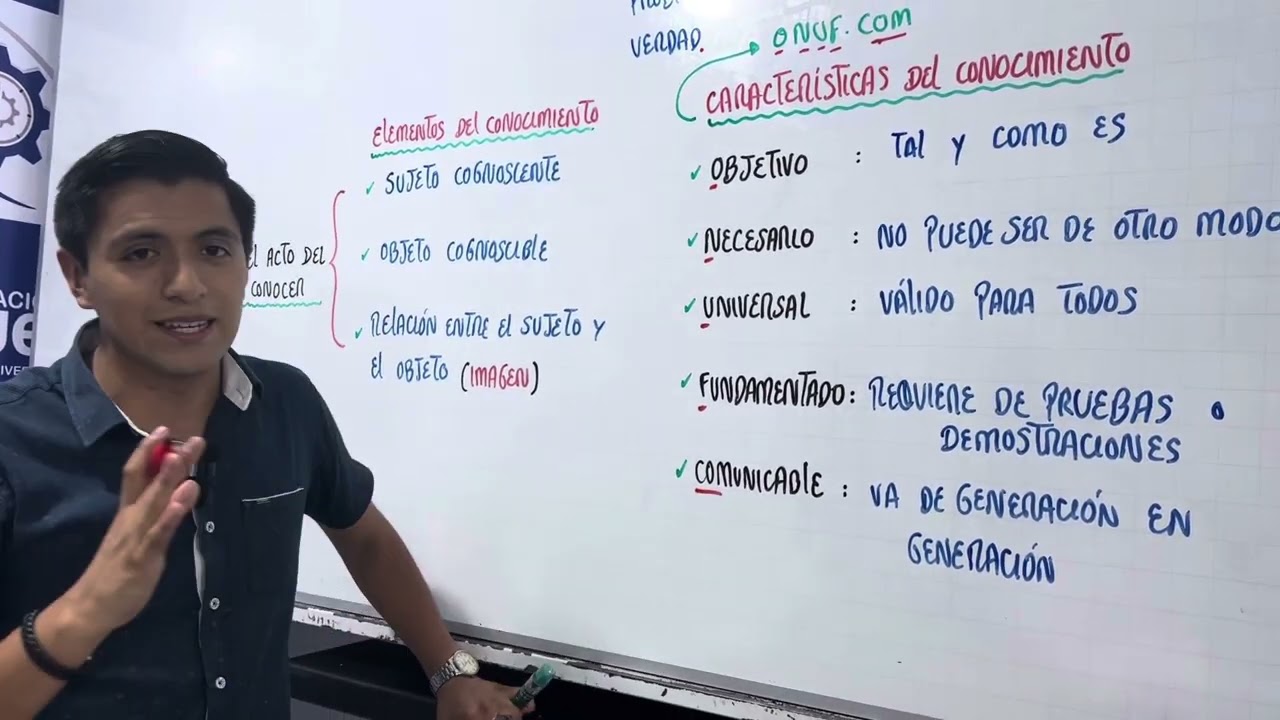 VERDAD.
ONUF.COM
CARACTERÍSTICAS DEL CONOCIMIENTO
ELEMENTOS DEL CONOCIMIENTO
✓ SUJETO COGNOSCENTE
✓ OBJETO COGNOSCIBLE
✓ RELACIÓN ENTRE EL SUJETO Y
EL OBJETO (IMAGEN)
ACTO DEL
CONOCER
✓ OBJETIVO : TAL Y COMO ES
✓ NECESARIO : NO PUEDE SER DE OTRO MODO
✓ UNIVERSAL : VÁLIDO PARA TODOS
✓ FUNDAMENTADO: REQUIERE DE PRUEBAS O
DEMOSTRACIONES
✓ COMUNICABLE : VA DE GENERACIÓN EN
GENERACIÓN